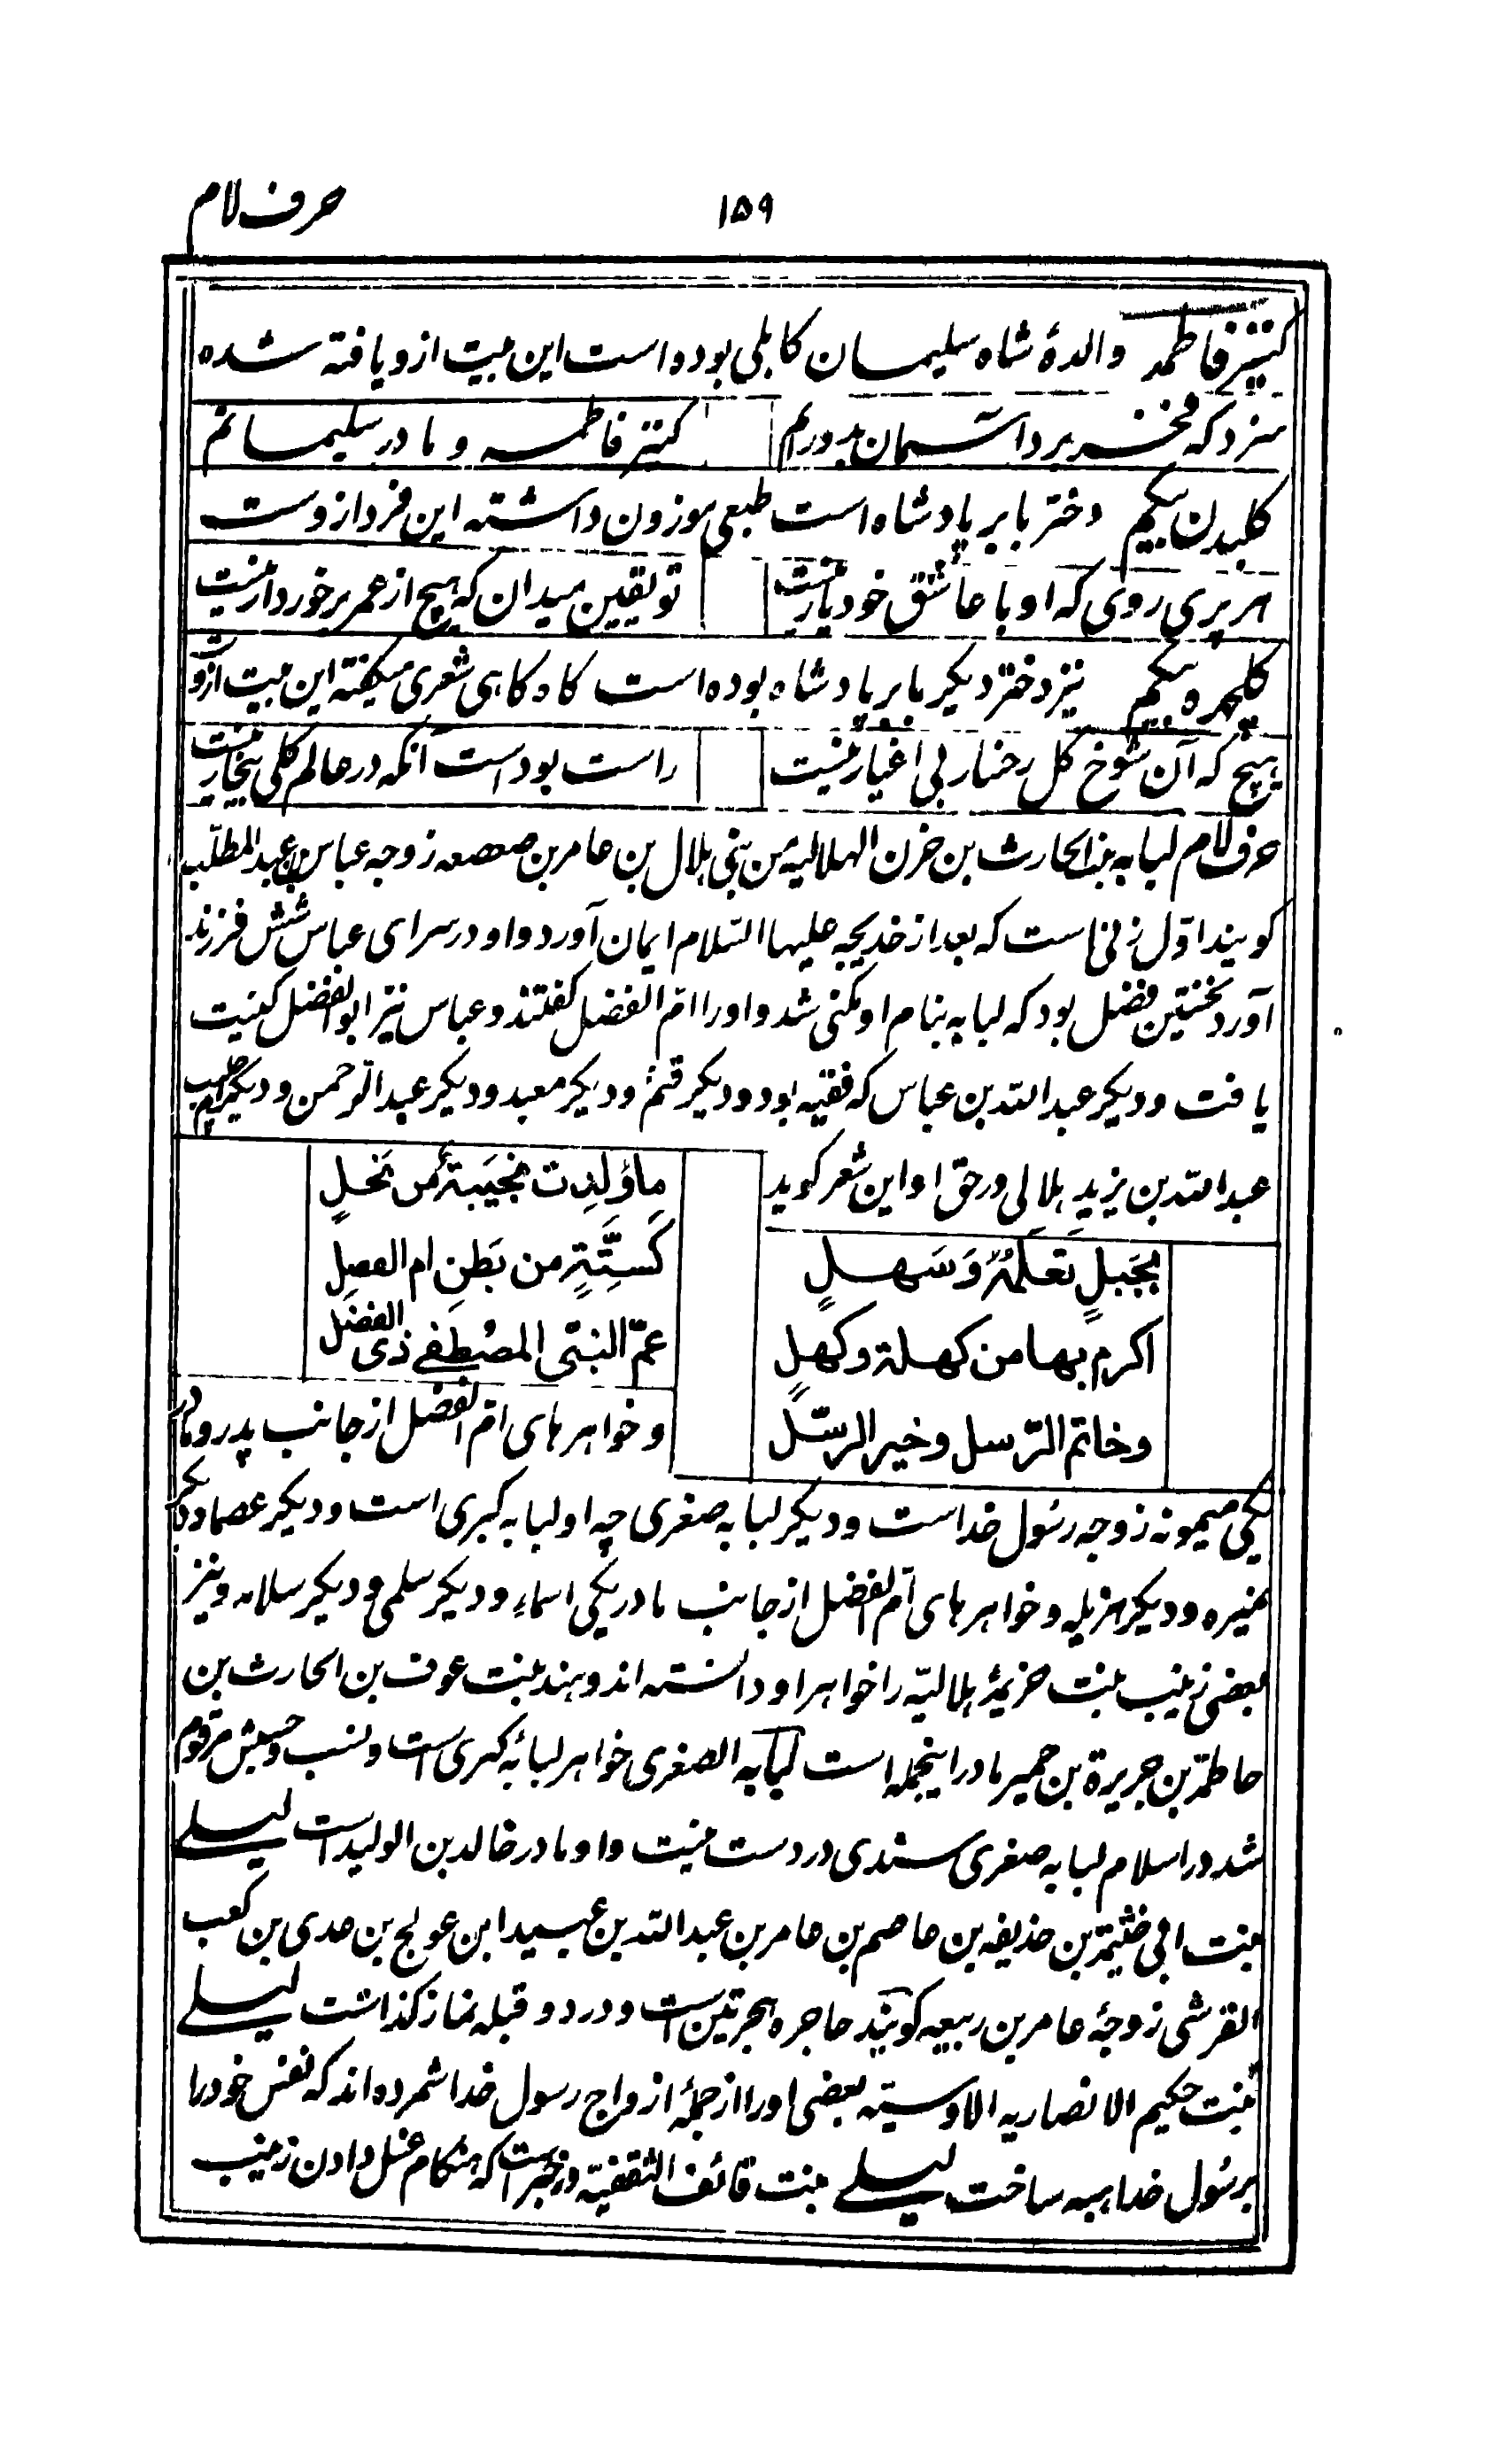 حرف لام
۱۵۹
کنیز فاطمه والدهٔ شاه سلیمان کابلی بوده است این بیت ازو یافته شده
سزد که فخر برد آسمان بدورانم کنیز فاطمه و مادر سلیمانم
گلبدن بیگم دختر بابر پادشاه است طبعی موزون داشته این فرد ازوست
هر پری روی که او با عاشق خود یار نیست تو یقین میدان که هیچ از عمر برخوردار نیست
گلچهره بیگم نیز دختر دیگر بابر پادشاه بوده است گاه گاهی شعری میگفته این بیت ازوست
هیچ که آن شوخ گل رخسار بی اغیار نیست راست بود است آنکه در عالم گلی بیخار نیست
حرف لام لبابه بنت الحارث بن حزن الهلالیة من بنی هلال بن عامر بن صعصعه زوجه عباس بن عبد المطلب
گویند اول زنی است که بعد از خدیجه علیها السلام ایمان آورد و او در سرای عباس شش فرزند
آورد نخستین فضل بود که لبابه بنام او مکنی شد و او را ام الفضل گفتند و عباس نیز ابو الفضل کنیت
یافت و دیگر عبد الله بن عباس که فقیه بود و دیگر قثم و دیگر معبد و دیگر عبد الرحمن و دیگر ام حبیب
عبد الله بن یزید هلالی در حق او این شعر گوید
ما وَلَدت نجیبَةٌ من فحلٍ
بجَبلٍ نَعلَمُهُ وَسَهلٍ
کَسِتَّةٍ من بَطنِ ام الفضلِ
اکرم بها من کهلة وکهلٍ
عمّ النبّی المصُطفی ذی الفضل
وخاتم الرسل وخیر الرسل
و خواهر های ام الفضل از جانب پدر و مادر
یکی میمونه زوجه رسول خداست و دیگر لبابه صغری چه او لبابه کبری است و دیگر عصما و دیگر
و دیگر هزیله و خواهر های ام الفضل از جانب مادر یکی اسماء و دیگر سلمی و دیگر سلامه و نیز
بعضی زینب بنت خزیمهٔ هلالیه را خواهر او دانسته اند و هند بنت عوف بن الحارث بن
حاطمة بن جریرة بن حمیر مادر اینجمله است لبابه الصغری خواهر لبابهٔ کبری است و نسب و حسبش مرقوم
شد در اسلام لبابه صغری سندی در دست نیست و او مادر خالد بن الولید است لیلی
بنت ابی خثیمة بن حذیفه بن عاصم بن عامر بن عبد الله بن عبید ابن عویج بن عدی بن کعب
القرشی زوجهٔ عامر بن ربیعه گویند هاجره هجرتین است و در دو قبله نماز گذاشت لیلی
بنت حکیم الانصاریه الاوسیة بعضی او را از جملهٔ ازواج رسول خدا شمرده اند که نفس خود را
برسول خدا هبه ساخت لیلی بنت قائف الثقفیة در خبر است که هنگام غسل دادن زینب